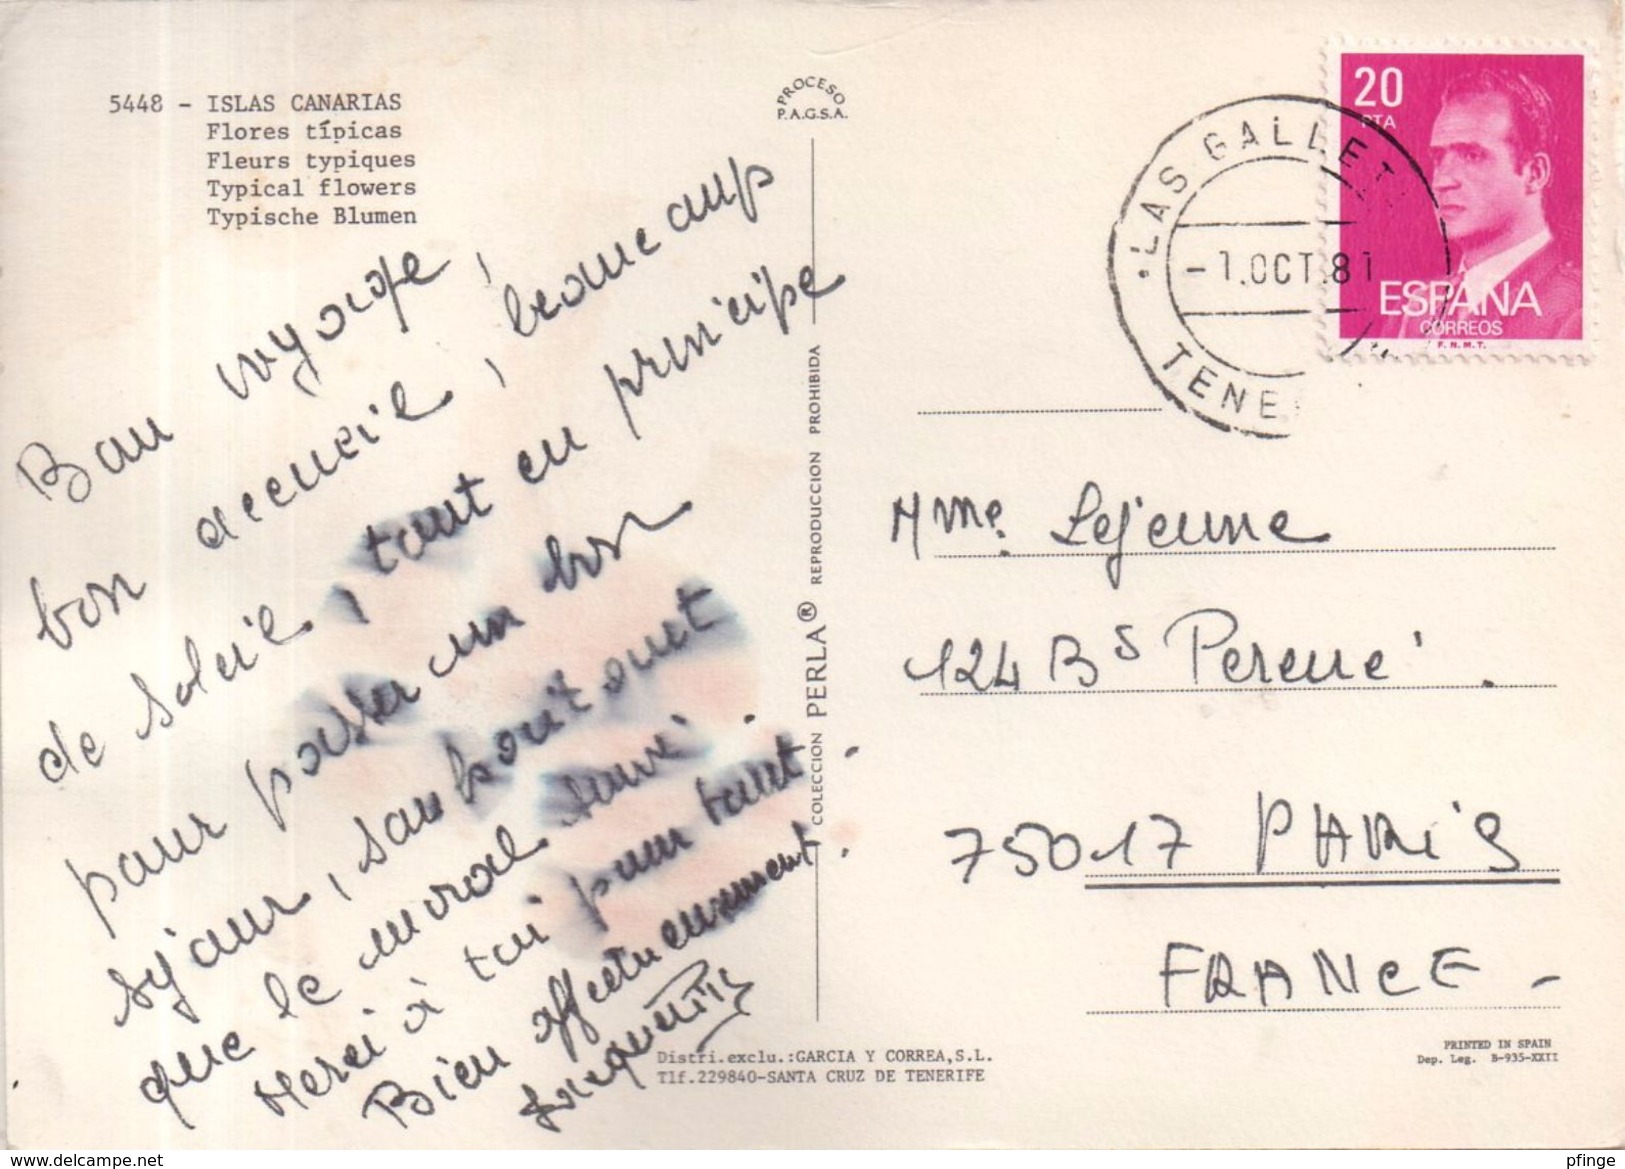 5448 - ISLAS CANARIAS
Flores típicas
Fleurs typiques
Typical flowers
Typische Blumen
Bon voyage,
bon accueil, beaucoup
de soleil, tout en principe
pour passer un bon
séjour, souhaitons
que le moral suive.
Merci à toi pour tout.
Bien affectueusement.
PROCESO
P.A.G.S.A.
COLECCION PERLA® REPRODUCCION PROHIBIDA
20
PTA
ESPAÑA
CORREOS
F.N.M.T.
LAS GALLET
-1.OCT.81
TENE
Mme. Lejeune
124 Bs Pereire.
75017 PARIS
FRANCE -
Distri.exclu.:GARCIA Y CORREA,S.L.
Tlf.229840-SANTA CRUZ DE TENERIFE
PRINTED IN SPAIN
Dep. Leg. B-935-XXII
www.delcampe.net
pfinge